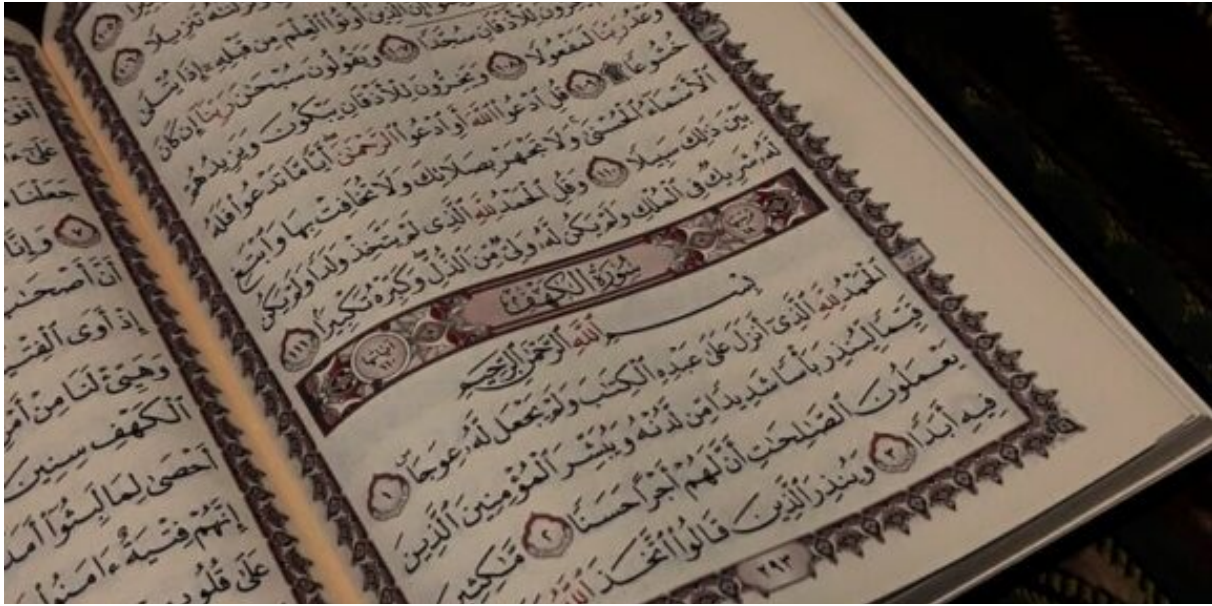 تَنزِيلًا ١٠٦
إِنَّ ٱلَّذِينَ أُوتُوا۟ ٱلْعِلْمَ مِن قَبْلِهِۦٓ إِذَا يُتْلَىٰ
يَخِرُّونَ لِلْأَذْقَانِ سُجَّدًا ١٠٧ وَيَقُولُونَ سُبْحَٰنَ رَبِّنَآ إِن كَانَ
وَعْدُ رَبِّنَا لَمَفْعُولًا ١٠٨ وَيَخِرُّونَ لِلْأَذْقَانِ يَبْكُونَ وَيَزِيدُهُمْ
خُشُوعًا ۩ ١٠٩ قُلِ ٱدْعُوا۟ ٱللَّهَ أَوِ ٱدْعُوا۟ ٱلرَّحْمَٰنَ أَيًّا مَّا تَدْعُوا۟ فَلَهُ
ٱلْأَسْمَآءُ ٱلْحُسْنَىٰ وَلَا تَجْهَرْ بِصَلَاتِكَ وَلَا تُخَافِتْ بِهَا وَٱبْتَغِ
بَيْنَ ذَٰلِكَ سَبِيلًا ١١٠ وَقُلِ ٱلْحَمْدُ لِلَّهِ ٱلَّذِى لَمْ يَتَّخِذْ وَلَدًا وَلَمْ يَكُن
لَّهُۥ شَرِيكٌ فِى ٱلْمُلْكِ وَلَمْ يَكُن لَّهُۥ وَلِىٌّ مِّنَ ٱلذُّلِّ وَكَبِّرْهُ تَكْبِيرًۢا ١١١
سُورَةُ الكَهْفِ
بِسْمِ ٱللَّهِ ٱلرَّحْمَٰنِ ٱلرَّحِيمِ
ٱلْحَمْدُ لِلَّهِ ٱلَّذِىٓ أَنزَلَ عَلَىٰ عَبْدِهِ ٱلْكِتَٰبَ وَلَمْ يَجْعَل لَّهُۥ عِوَجَاۜ ١
قَيِّمًا لِّيُنذِرَ بَأْسًا شَدِيدًا مِّن لَّدُنْهُ وَيُبَشِّرَ ٱلْمُؤْمِنِينَ ٱلَّذِينَ
يَعْمَلُونَ ٱلصَّٰلِحَٰتِ أَنَّ لَهُمْ أَجْرًا حَسَنًا ٢ مَّٰكِثِينَ
فِيهِ أَبَدًا ٣ وَيُنذِرَ ٱلَّذِينَ قَالُوا۟ ٱتَّخَذَ ٱللَّهُ
٢٩٣
جَعَلْنَا
٧ وَإِنَّا
أَنَّ أَصْحَٰبَ
إِذْ أَوَى ٱلْفِتْيَةُ
وَهَيِّئْ لَنَا مِنْ أَمْرِنَا
ٱلْكَهْفِ سِنِينَ
أَحْصَىٰ لِمَا لَبِثُوٓا۟ أَمَدًا
إِنَّهُمْ فِتْيَةٌ ءَامَنُوا۟
عَلَىٰ قُلُوبِهِمْ